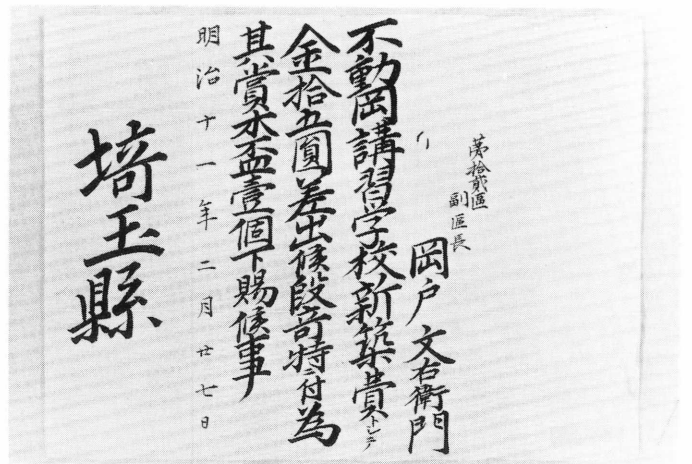 第拾貳區
副區長
岡戸文右衛門
不動岡講習学校新築費トシテ
金拾五圓差出候段奇特ニ付為
其賞木盃壹個下賜候事
明治十一年二月廿七日
埼玉縣